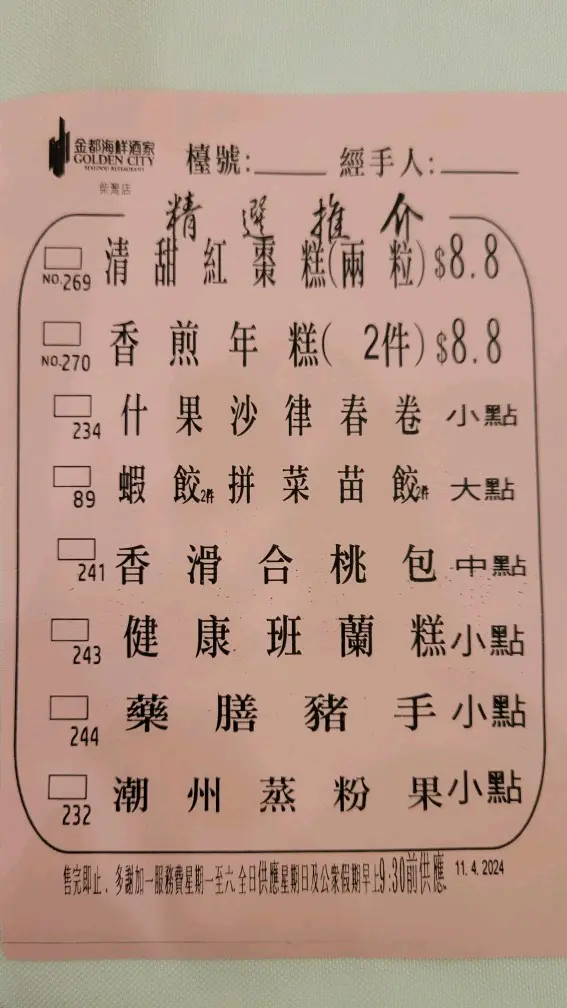 金都海鮮酒家
GOLDEN CITY
SEAFOOD RESTAURANT
柴灣店
檯號:_____ 經手人:_____
精選推介
NO.269 清甜紅棗糕(兩粒) $8.8
NO.270 香煎年糕( 2件) $8.8
234 什果沙律春卷 小點
89 蝦餃2件拼菜苗餃2件 大點
241 香滑合桃包 中點
243 健康班蘭糕 小點
244 藥膳豬手 小點
232 潮州蒸粉果 小點
售完即止. 多謝加一服務費星期一至六 全日供應星期日及公衆假期早上9:30前供應 11.4.2024